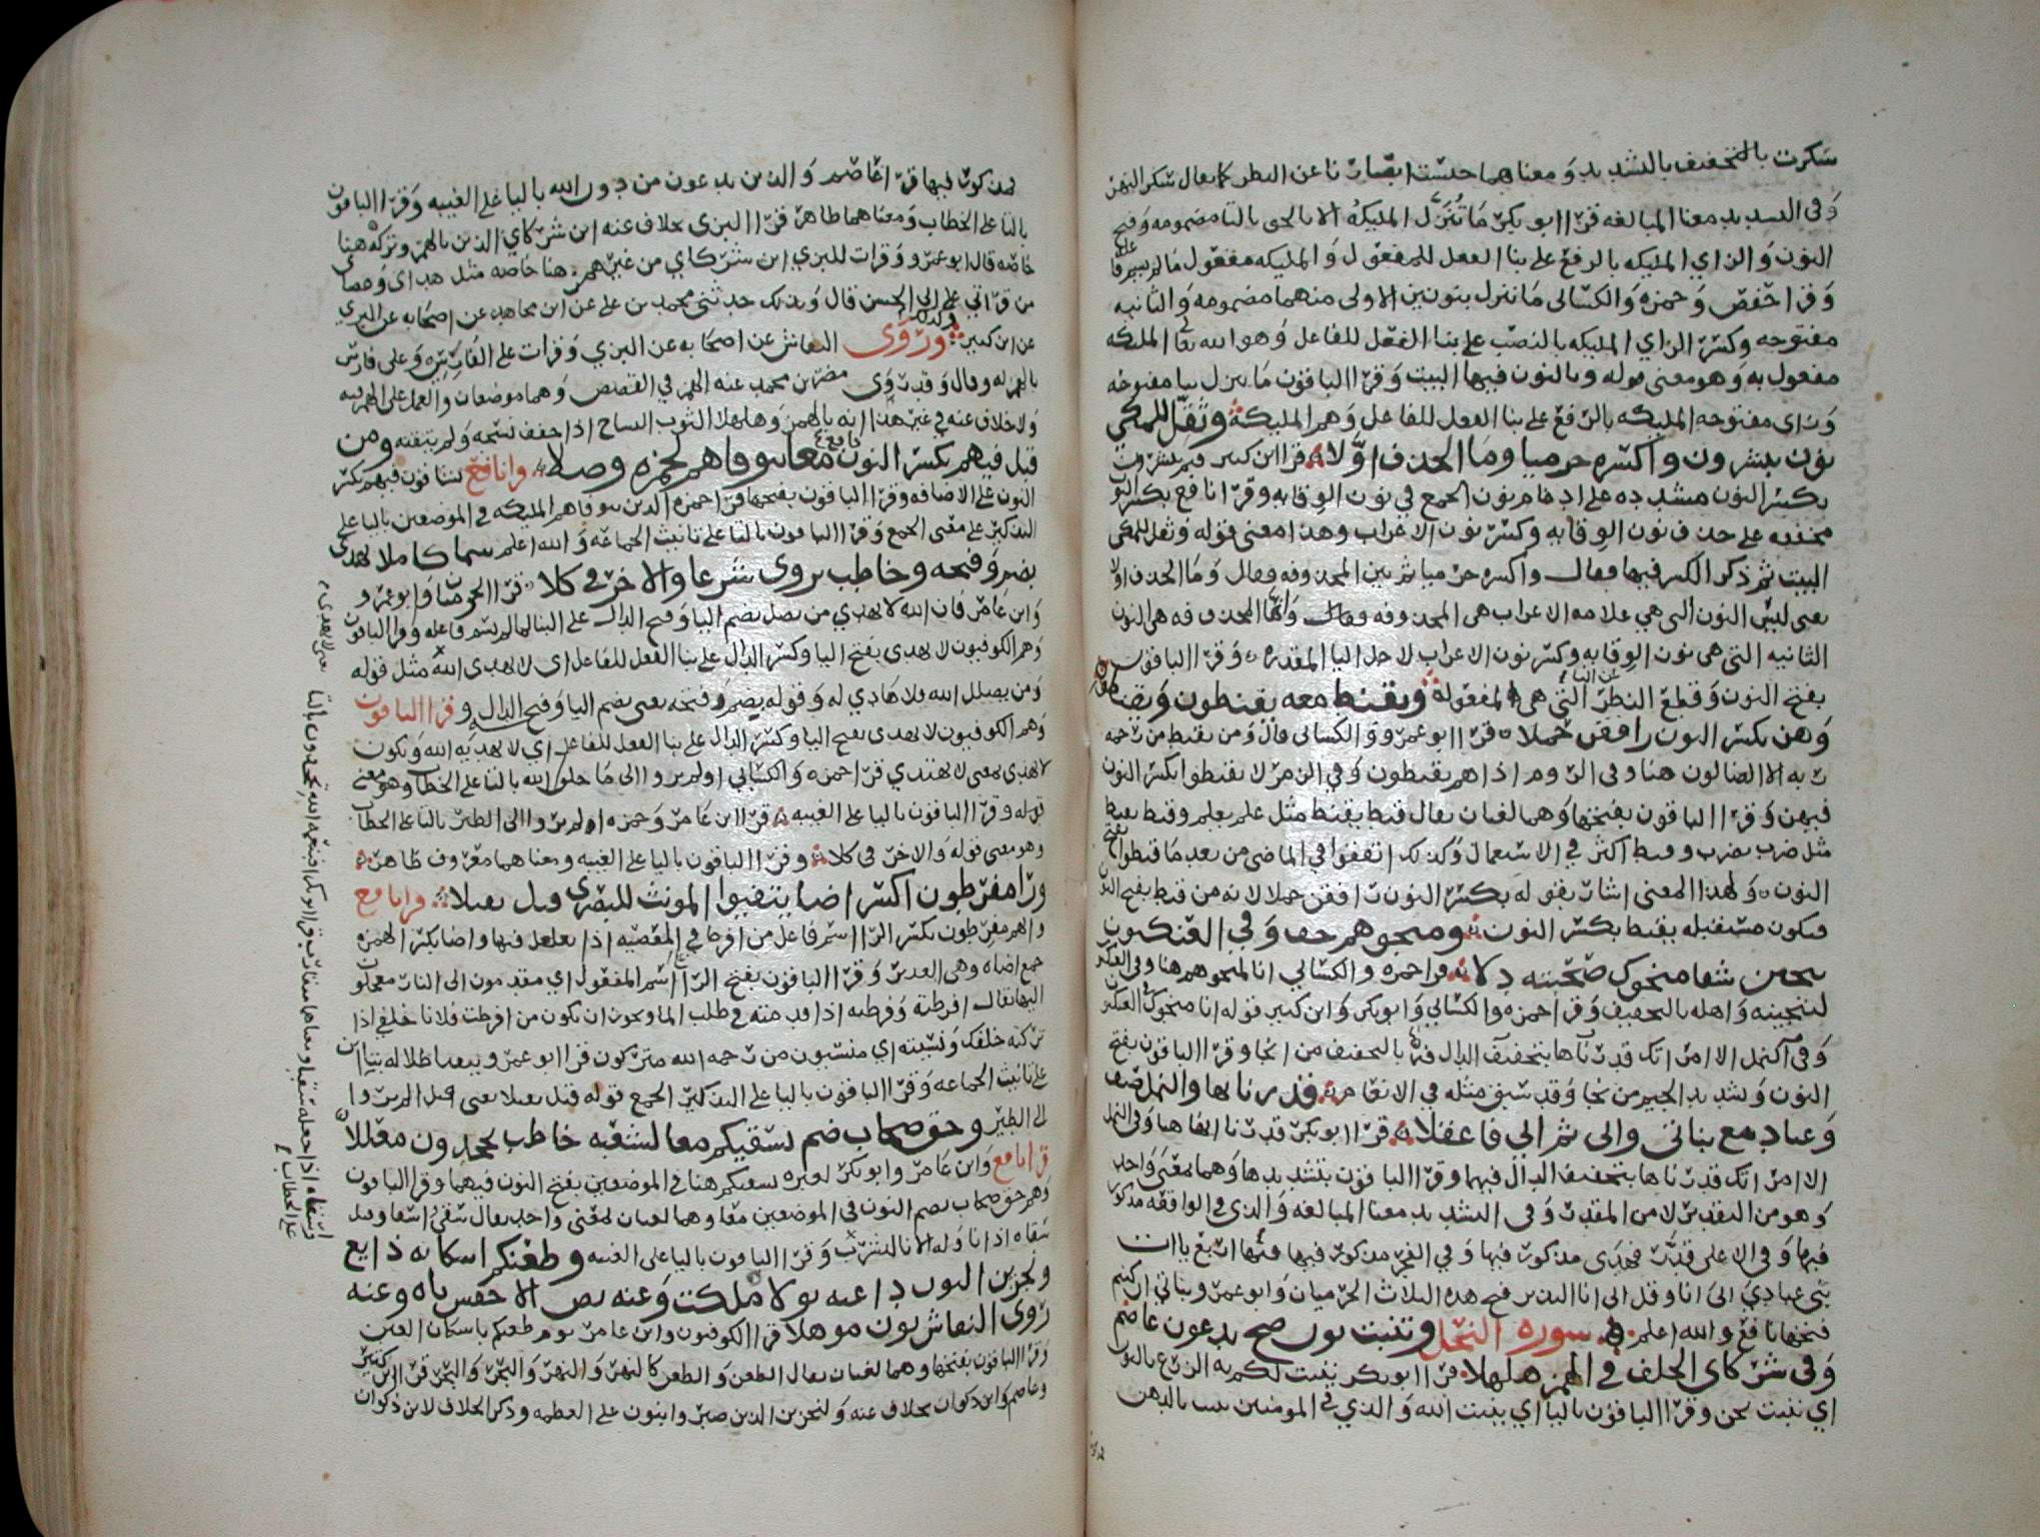 سكرت بالتخفيف بالتشديد ومعناهما حبست ابصارنا عن النظر كما يقال سكر النهر
وفي التشديد معنا المبالغه قرا ابو بكر ما تنزل المليكه الا بالحق بالتا مضمومه وفتح
النون والزاي المليكه بالرفع على بنا الفعل للمفعول والمليكه مفعول ما لم يسم فاعله
وقرا حفص وحمزه والكسائي ما ننزل بنونين الاولى منهما مضمومه والثانيه
مفتوحه وكسر الزاي المليكه بالنصب على بنا الفعل للفاعل وهو الله تعالى المليكه
مفعول به وهو معنى قوله وبالنون فيها البيت وقرا الباقون ما تنزل بتا مفتوحه
وزاى مفتوحه المليكه بالرفع على بنا الفعل للفاعل وهم المليكة وثقل للمكي
نون تبشرون واكسره حرميا وما الحذف اولا قرا ابن كثير فبم تبشرون
بكسر النون مشدده على ادغام نون الجمع في نون الوقايه وقرا نافع بكسر النون
مخففه على حذف نون الوقايه وكسر نون الاعراب وهذا معنى قوله وثقل للمكي
البيت ثم ذكر الكسر فيها فقال واكسره حرميا ثم بين المحذوفه فقال وما الحذف اولا
يعنى ليس النون التى هي علامه الاعراب هى المحذوفه فقال وانما المحذوفه هى النون
الثانيه التى هى نون الوقايه وكسر نون الاعراب لاجل اليا المقدره وقرا الباقون
بفتح النون وقطع النظر عن اليا التى هى المفعولة ويقنط معه يقنطون وتقنطوا
وهن بكسر النون رافقن حملا قرا ابو عمرو والكسائى قال ومن يقنط من رحمه
ربه الا الضالون هنا وفى الروم اذا هم يقنطون وفي الزمر لا تقنطوا بكسر النون
فيهن وقرا الباقون بفتحها وهما لغتان يقال قنط يقنط مثل علم يعلم وقنط يقنط
مثل ضرب يضرب وقنط اكثر في الاستعمال وكذلك اتفقوا في الماضى من بعد ما قنطوا بفتح
النون ولهذا المعنى اشار بقوله بكسر النون رافقن حملا لانه من قنط بفتح النون
فيكون مستقبله يقنط بكسر النون ومنجوهم خف وفي العنكبوت
ننجين شفا منجوك صحبته دلا قرا حمزه والكسائي انا لمنجوهم هنا وفى العنكبوت
لننجينه واهله بالتخفيف وقرا حمزه والكسائي وابو بكر وابن كثير قوله انا منجوك في العنكبوت
بالتخفيف من انجا وقرا الباقون بفتح
النون وتشديد الجيم من نجا وقد سبق مثله في الانعام قدرنا بها والنمل صف
وعباد مع بناتى واني ثم اني فاعقلا قرا ابو بكر قدرنا انها هنا وفى النمل
الا امراتك قدرناها بتخفيف الدال فيهما وقرا الباقون بتشديدها وهما لمعنى واحد
وهو من التقدير لا من المقدرة وفى التشديد معنا المبالغه والذي في الواقعه مذكور
فيها وفى الاعلى قدر فهدى مذكور فيها وفي الفجر مذكور فيها فيها اربع يااات
نبى عبادي انى انا وقل انى انا النذير فتح هذه الثلاث الحرميان وابو عمرو وبناتي ان كنتم
فتحها نافع والله اعلم سوره النحل وتنبت نون صح يدعون عاصم
وفى شركاى الخلف في الهمز هلهلا قرا ابو بكر ننبت لكم به الزرع بالنون
اي ننبت نحن وقرا الباقون باليا اي ينبت الله والذي في المومنين تنبت بالدهن
مذكور فيها قرا عاصم والذين يدعون من دون الله باليا على الغيبه وقرا الباقون
بالتا على الخطاب ومعناهما ظاهر قرا البزى بخلاف عنه اين شركاي الذين بالهمز وتركه هنا
خاصه قال ابو عمرو وقرات للبزي اين شركاي من غير همز هنا خاصه مثل هداى وعصاى
من قراتي على ابي الحسن قال وبذلك حدثنى محمد بن على عن ابن مجاهد عن اصحابه عن البزي
عن ابن كثير وروى النقاش عن اصحابه عن البزي وقرات على الفارسي وعلى فارس
بالهمز له وقال وقد روى مضر بن محمد عنه الهمز في القصص وهما موضعان والعمل على الهمز فيه
ولا خلاف عنه في غير هذا انه بالهمز وهلهلا الثوب النساج اذا خفف نسجه ولم يتقنه ومن
قبل فيهم بكسر النون نافع معا يتوفاهم لحمزه وصلا وانافع تشاقون فيهم بكسر
النون على الاضافه وقرا الباقون بفتحها قرا حمزه الذين يتوفاهم المليكه في الموضعين باليا على
التذكير على معنى الجمع وقرا الباقون بالتا على تانيث الجماعه والله اعلم سما كاملا يهدي
بضم وفتحه وخاطب تروى شرعا والاخر في كلا قرا الحرميان وابو عمرو
وابن عامر فان الله لا يهدي من يضل بضم اليا وفتح الدال على البنا لما لم يسم فاعله وقرا الباقون
وهم الكوفيون لا يهدى بفتح اليا وكسر الدال على بنا الفعل للفاعل اى لا يهدى الله مثل قوله
ومن يضلل الله فلا هادي له وقوله بضم وفتحه يعنى بضم اليا وفتح الدال وقرا الباقون
وهم الكوفيون لا يهدى بفتح اليا وكسر الدال على بنا الفعل للفاعل اي لا يهديه الله ويكون
لا يهدى بمعنى لا يهتدي قرا حمزه والكسائي اولم تروا الى ما خلق الله بالتا على الخطاب وهو معنى
قوله وقرا الباقون باليا على الغيبه قرا ابن عامر وحمزه الم تروا الى الطير بالتا على الخطاب
وهو معنى قوله والاخر في كلا وقرا الباقون باليا على الغيبه ومعناهما معروف ظاهر
ورا مفرطون اكسر اضا يتفيوا المونث للبصري قبل تقبلا قرا نافع
وانهم مفرطون بكسر الرا اسم فاعل من افرط في المعصيه اذا تغلغل فيها واضا بكسر الهمزه
جمع اضاه وهى الغدير وقرا الباقون بفتح الرا اسم المفعول اي مقدمون الى النار معجلون
اليها يقال افرطته وفرطته اذا قدمته في طلب الما ويجوز ان يكون من افرطت فلانا خلفي اذا
تركته خلفك ونسيته اي منسيون من رحمه الله متركون قرا ابو عمرو تتفيوا ظلاله بتاين
على تانيث الجماعه وقرا الباقون باليا على التذكير الجمع قوله قبل تقبلا يعنى قبل الم يروا
الى الطير وحق صحاب ضم نسقيكم معا لشعبه خاطب يجحدون معللا
قرا نافع وابن عامر وابو بكر لعبره نسقيكم هنا في الموضعين بفتح النون فيهما وقرا الباقون
وهم حق صحاب بضم النون في الموضعين معا وهما لغتان لمعنى واحد يقال سقى واسقا وقيل
سقاه اذا ناوله الانا ليشرب وقرا الباقون باليا على الغيبه وظعنكم اسكانه ذايع
ونجزين النون داعيه نولا ملكت وعنه نص الاخفش ياه وعنه
روى النقاش نون موهلا قرا الكوفيون وابن عامر يوم ظعنكم باسكان العين
وقرا الباقون بفتحها وهما لغتان يقال الظعن والظعن كالنهر والنهر قرا ابن كثير
وعاصم وابن ذكوان بخلاف عنه ولنجزين الذين صبروا بنون على العظمه وذكر الخلاف لابن ذكوان